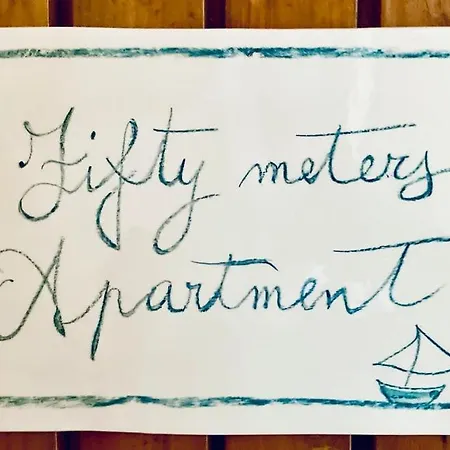 Fifty meters
Apartment